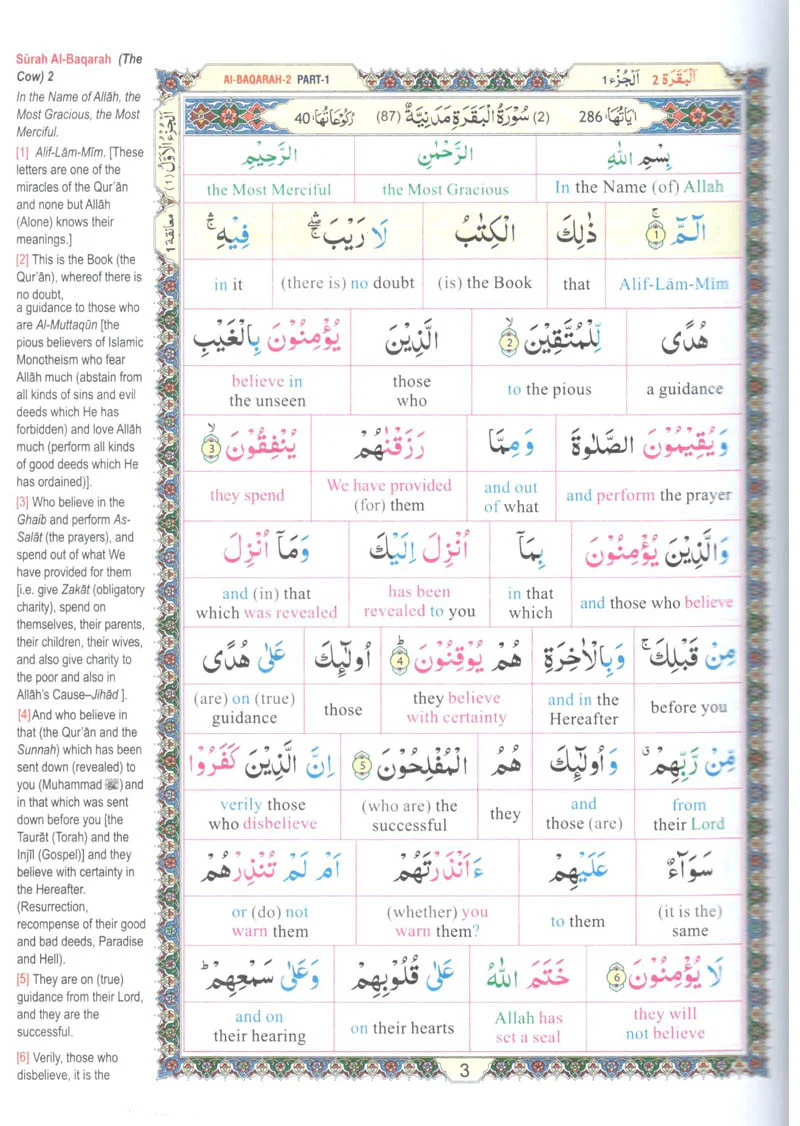 Sûrah Al-Baqarah (The
Cow) 2
In the Name of Allâh, the
Most Gracious, the Most
Merciful.
[1] Alif-Lâm-Mîm. [These
letters are one of the
miracles of the Qur'ân
and none but Allâh
(Alone) knows their
meanings.]
[2] This is the Book (the
Qur'ân), whereof there is
no doubt,
a guidance to those who
are Al-Muttaqûn [the
pious believers of Islamic
Monotheism who fear
Allâh much (abstain from
all kinds of sins and evil
deeds which He has
forbidden) and love Allâh
much (perform all kinds
of good deeds which He
has ordained)].
[3] Who believe in the
Ghaib and perform As-
Salât (the prayers), and
spend out of what We
have provided for them
[i.e. give Zakât (obligatory
charity), spend on
themselves, their parents,
their children, their wives,
and also give charity to
the poor and also in
Allâh's Cause–Jihâd ].
[4]And who believe in
that (the Qur'ân and the
Sunnah) which has been
sent down (revealed) to
you (Muhammad ﷺ) and
in that which was sent
down before you [the
Taurât (Torah) and the
Injîl (Gospel)] and they
believe with certainty in
the Hereafter.
(Resurrection,
recompense of their good
and bad deeds, Paradise
and Hell).
[5] They are on (true)
guidance from their Lord,
and they are the
successful.
[6] Verily, those who
disbelieve, it is the
Al-BAQARAH-2 PART-1
اَلْبَقَرَة 2 اَلْجُزْء 1
اٰيَاتُهَا 286 (2) سُوْرَةُ الْبَقَرَةِ مَدَنِيَّةٌ (87) رُكُوْعَاتُهَا 40
اَلْجُزْءُ الْاَوَّلُ (١)
معانقة ١
بِسْمِ اللّٰهِ الرَّحْمٰنِ الرَّحِيْمِ
the Most Merciful the Most Gracious In the Name (of) Allah
الٓمّٓ ۚ ١ ذٰلِكَ الْكِتٰبُ لَا رَيْبَ ۛ فِيْهِ ۛ
in it (there is) no doubt (is) the Book that Alif-Lâm-Mîm
هُدًى لِّلْمُتَّقِيْنَ ۙ ٢ الَّذِيْنَ يُؤْمِنُوْنَ بِالْغَيْبِ
believe in those to the pious a guidance
the unseen who
وَيُقِيْمُوْنَ الصَّلٰوةَ وَمِمَّا رَزَقْنٰهُمْ يُنْفِقُوْنَ ۙ ٣
they spend We have provided and out and perform the prayer
(for) them of what
وَالَّذِيْنَ يُؤْمِنُوْنَ بِمَآ اُنْزِلَ اِلَيْكَ وَمَآ اُنْزِلَ
and (in) that has been in that and those who believe
which was revealed revealed to you which
مِنْ قَبْلِكَ ۚ وَبِالْاٰخِرَةِ هُمْ يُوْقِنُوْنَ ؕ ٤ اُولٰٓئِكَ عَلٰى هُدًى
(are) on (true) those they believe and in the before you
guidance with certainty Hereafter
مِّنْ رَّبِّهِمْ ۗ وَاُولٰٓئِكَ هُمُ الْمُفْلِحُوْنَ ٥ اِنَّ الَّذِيْنَ كَفَرُوْا
verily those (who are) the they and from
who disbelieve successful those (are) their Lord
سَوَآءٌ عَلَيْهِمْ ءَاَنْذَرْتَهُمْ اَمْ لَمْ تُنْذِرْهُمْ
or (do) not (whether) you to them (it is the)
warn them warn them? same
لَا يُؤْمِنُوْنَ ٦ خَتَمَ اللّٰهُ عَلٰى قُلُوْبِهِمْ وَعَلٰى سَمْعِهِمْ ؕ
and on on their hearts Allah has they will
their hearing set a seal not believe
3